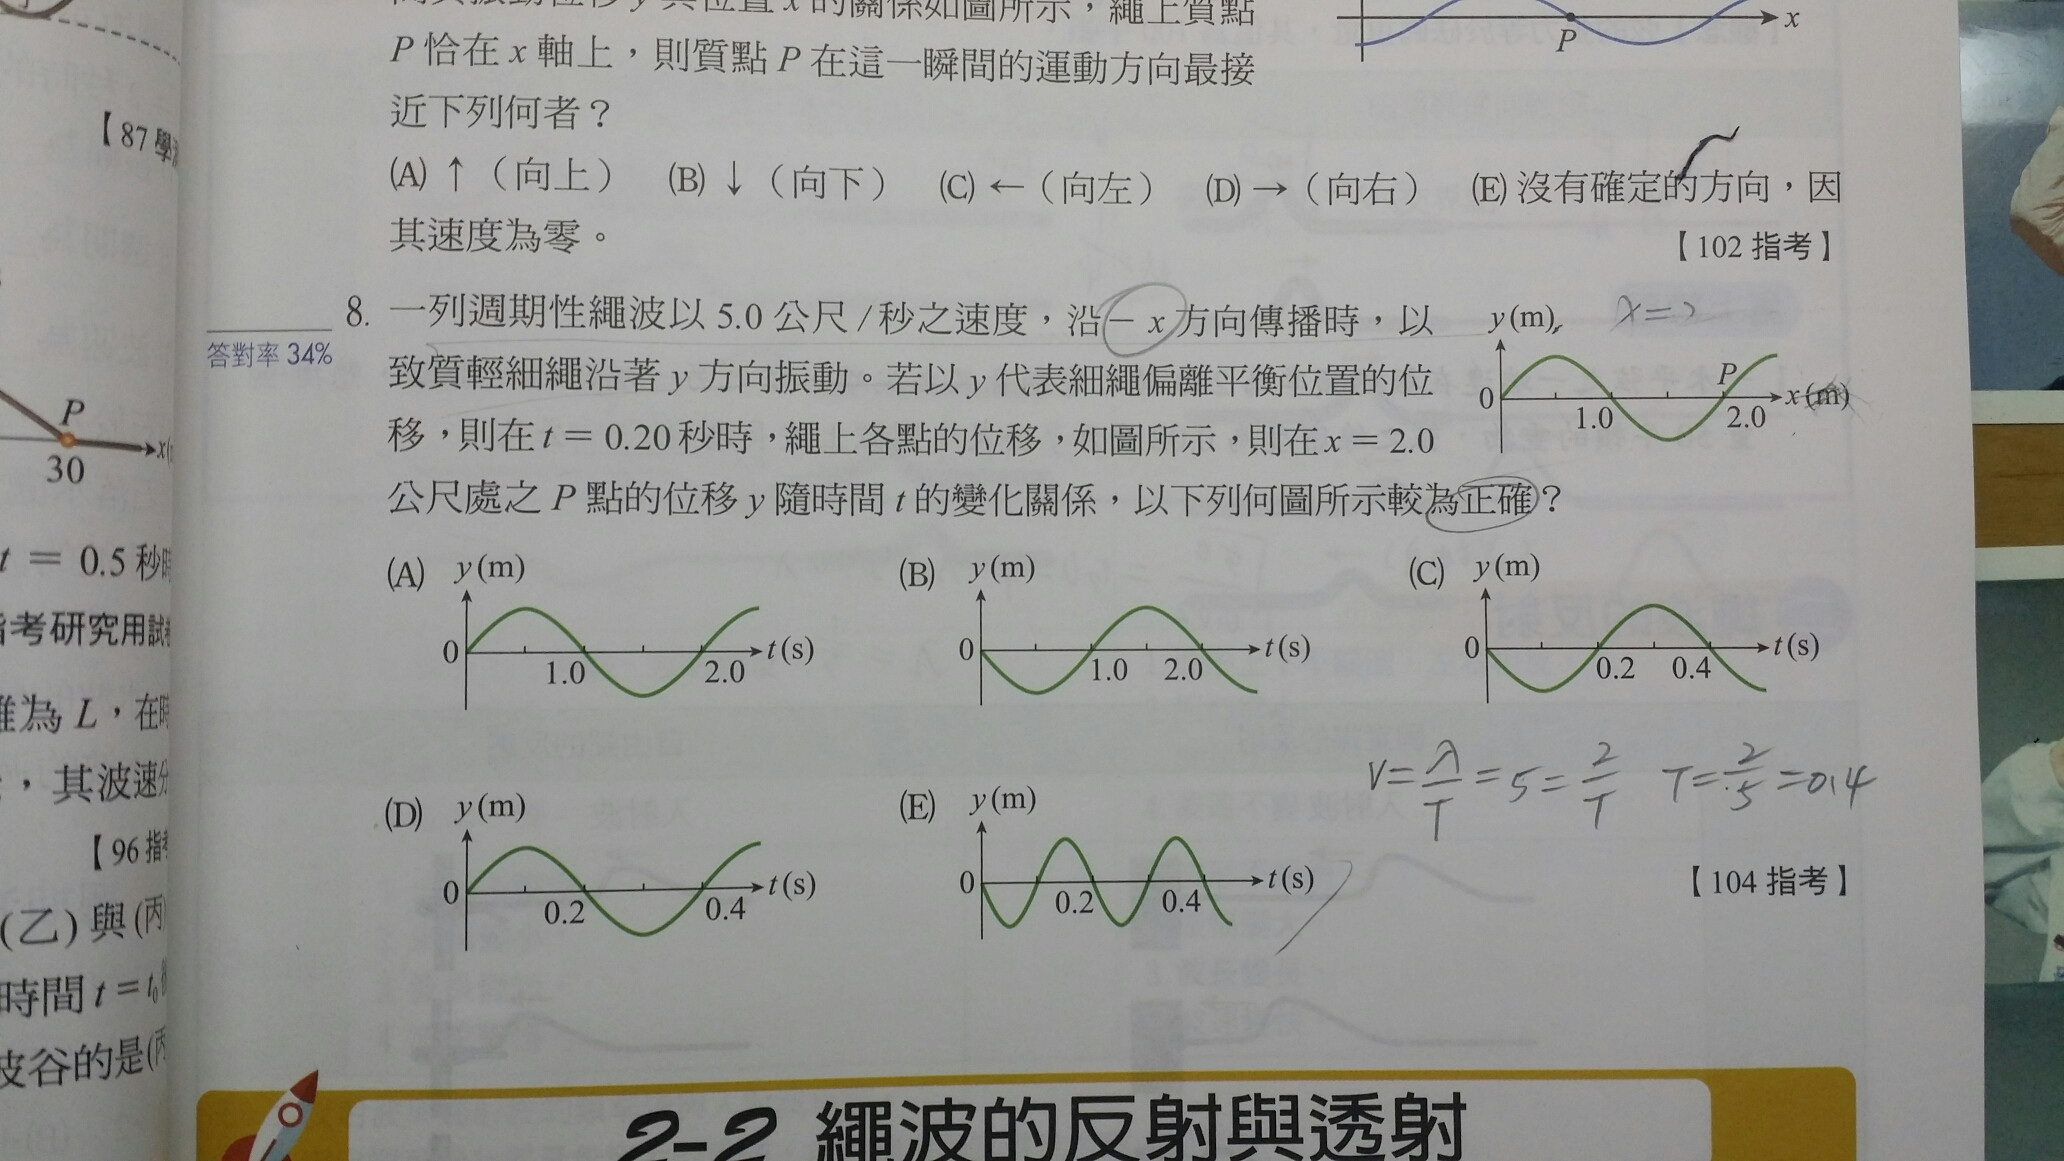 P 恰在 x 軸上，則質點 P 在這一瞬間的運動方向最接
近下列何者？
(A) ↑（向上） (B) ↓（向下） (C) ←（向左） (D) →（向右） (E) 沒有確定的方向，因
其速度為零。
【102 指考】
x
P
8. 一列週期性繩波以 5.0 公尺/秒之速度，沿 －x 方向傳播時，以
致質輕細繩沿著 y 方向振動。若以 y 代表細繩偏離平衡位置的位
移，則在 t = 0.20 秒時，繩上各點的位移，如圖所示，則在 x = 2.0
公尺處之 P 點的位移 y 隨時間 t 的變化關係，以下列何圖所示較為正確？
答對率 34%
y(m)
0
1.0
P
2.0
x(m)
(A) y(m)
0
1.0
2.0
t(s)
(B) y(m)
0
1.0
2.0
t(s)
(C) y(m)
0
0.2
0.4
t(s)
(D) y(m)
0
0.2
0.4
t(s)
(E) y(m)
0
0.2
0.4
t(s)
V=λ/T=5=2/T T=2/5=0.4
【104 指考】
2-2 繩波的反射與透射
【87 學
P
30
t = 0.5 秒
指考研究用試
為 L，在
，其波速
【96 指
(乙) 與 (丙)
時間 t = t₀
波谷的是